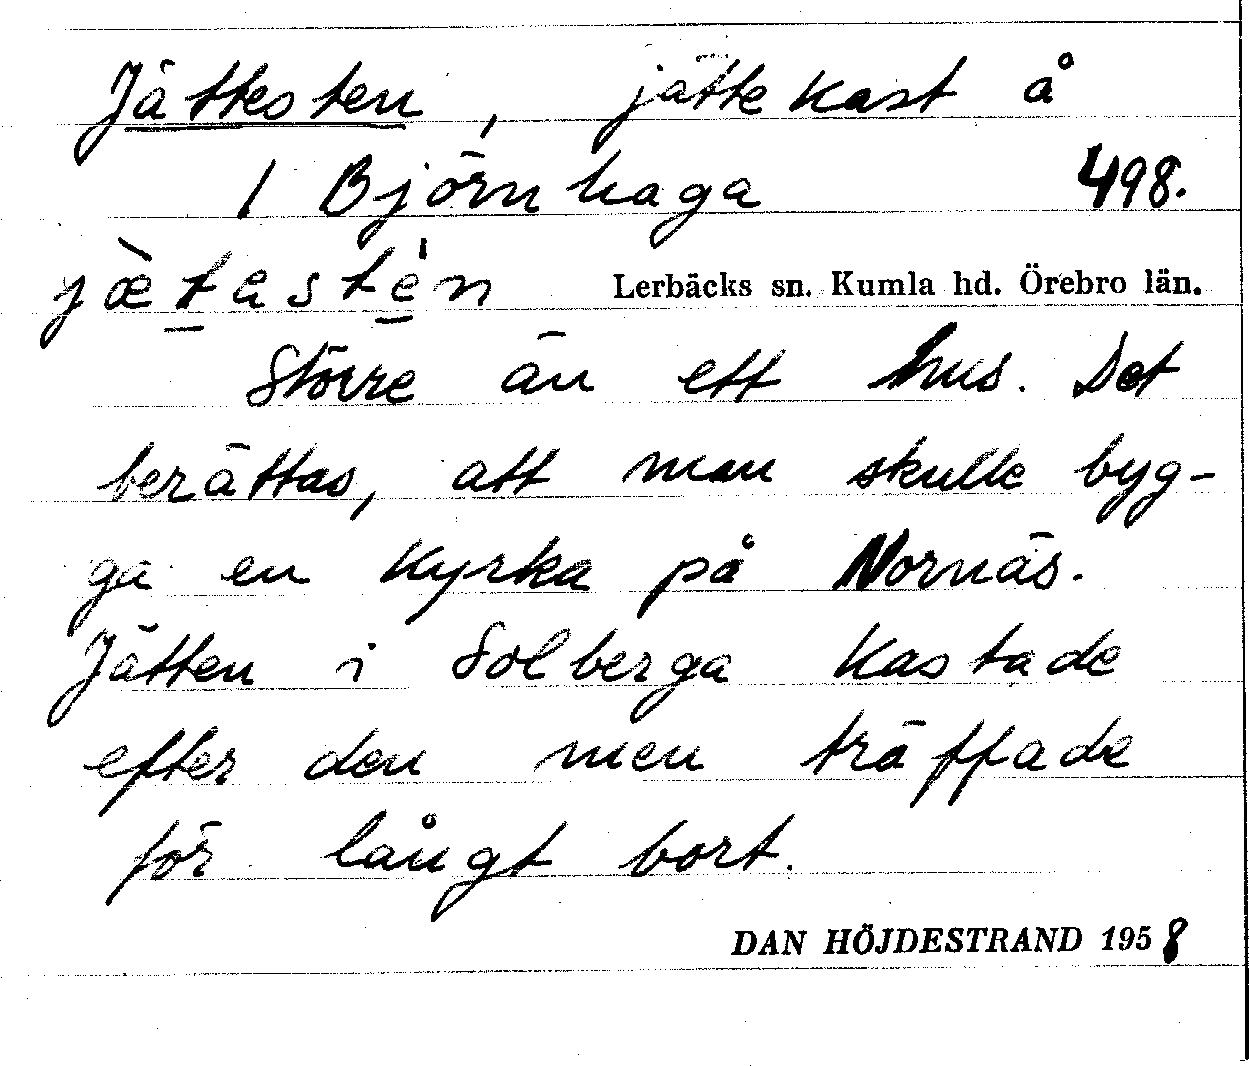 Jättesten, jättekast å
1 Björnhaga 498.
jæ̀tastén Lerbäcks sn. Kumla hd. Örebro län.
Större än ett hus. Det
berättas, att man skulle byg-
ga en kyrka på Nornäs.
Jätten i Solberga kastade
efter den men träffade
för långt bort.
DAN HÖJDESTRAND 1958